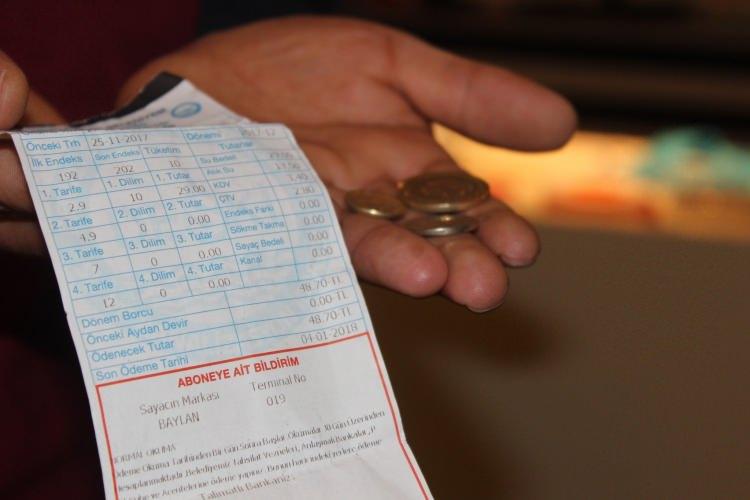 Önceki Trh 25-11-2017 Dönemi 2017-12
İlk Endeks Son Endeks Tüketim Tutarlar
192 202 10 Su Bedeli
1. Tarife 1. Dilim 1. Tutar Atık Su
2.9 10 29.00 KDV 3.40
2. Tarife 2. Dilim 2. Tutar ÇTV 2.80
4.9 0 0.00 Endeks Farkı 0.00
3. Tarife 3. Dilim 3. Tutar Sökme Takma 0.00
7 0 0.00 Sayaç Bedeli 0.00
4. Tarife 4. Dilim 4. Tutar Kanal 0.00
12 0 0.00
Dönem Borcu 48.70-TL
Önceki Aydan Devir 0.00-TL
Ödenecek Tutar 48.70-TL
Son Ödeme Tarihi 04-01-2018
ABONEYE AİT BİLDİRİM
Sayacın Markası Terminal No
BAYLAN 019
NORMAL OKUMA
Ödeme Okuma Tarihinden Bir Gün Sonra Başlar. Okumalar 30 Gün Üzerinden
hesaplanmaktadır. Belediyemiz Tahsilat Vezneleri, Anlaşmalı Bankalar, P
Şube ve Acentelerine ödeme yapınız. Bunun haricindeki yerlere ödeme
Talimatlı Bankanız: